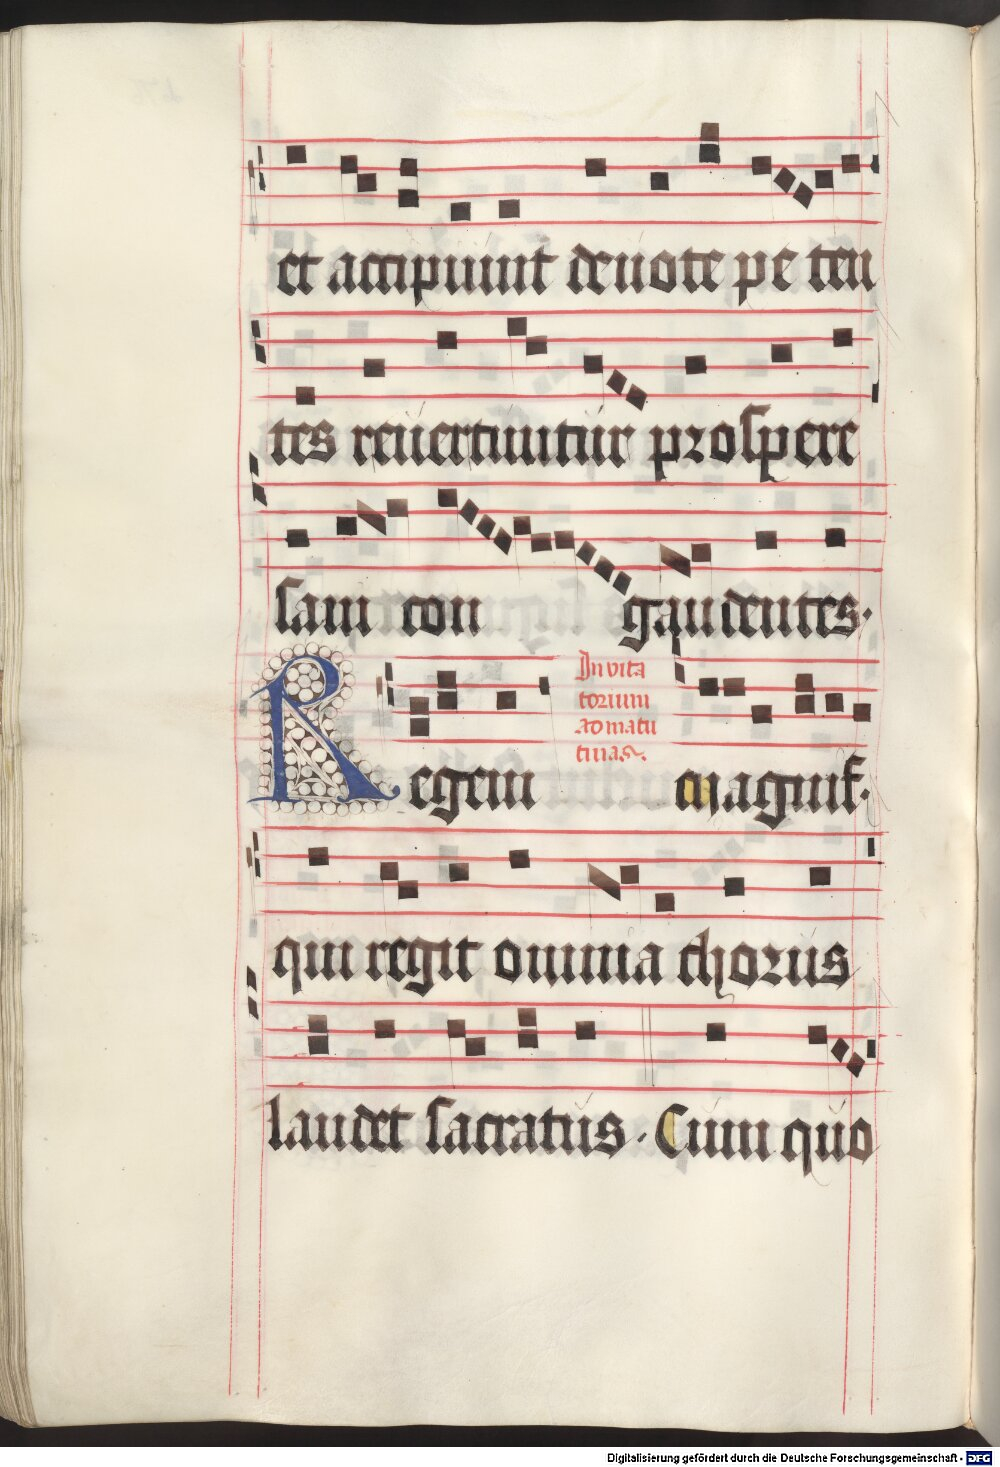 et accipiunt deuote pe ten
tes reuertuntur prospere
sani con gaudentes.
Inuita
torium
ad matu
tinas.
Regem magnum.
qui regit omnia chorus
laudet sacratus. Cum quo
Digitalisierung gefördert durch die Deutsche Forschungsgemeinschaft - DFG